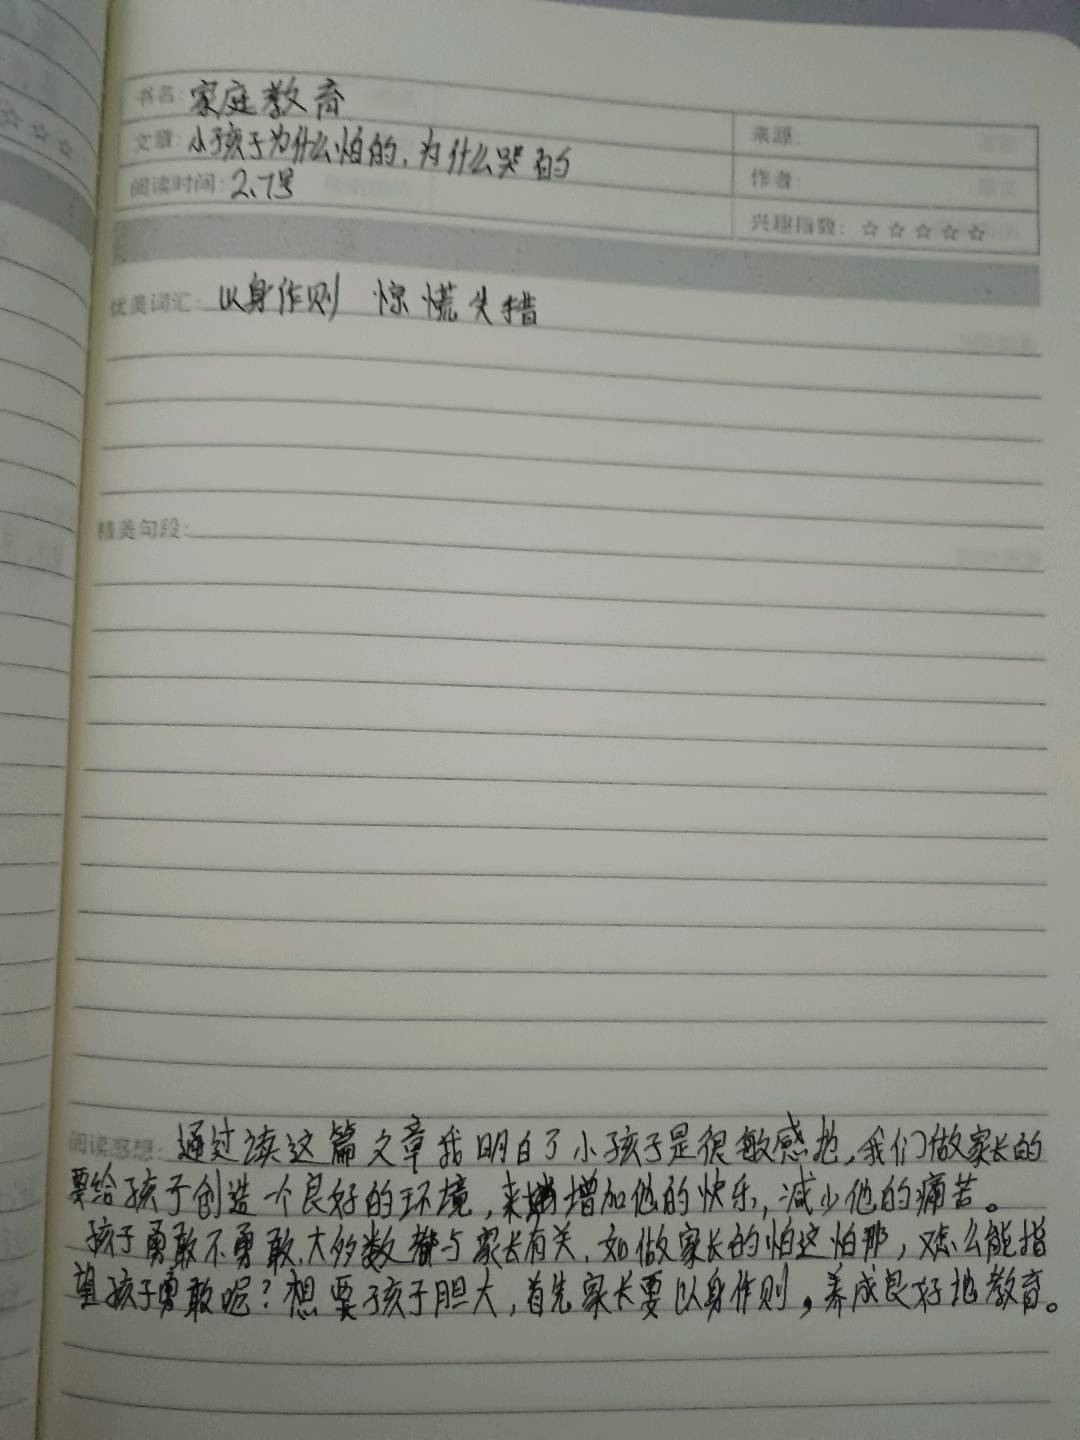 书名: 家庭教育
来源:
文章: 小孩子为什么怕的,为什么哭的
作者:
阅读时间: 2.7号
兴趣指数: ☆☆☆☆☆
优美词汇: 以身作则 惊慌失措
精美句段:
阅读感想: 通过读这篇文章我明白了小孩子是很敏感地,我们做家长的
要给孩子创造一个良好的环境,来增加他的快乐,减少他的痛苦。
孩子勇敢不勇敢,大多数都与家长有关,如做家长的怕这怕那,又怎么能指
望孩子勇敢呢?想要孩子胆大,首先家长要以身作则,养成良好地教育。